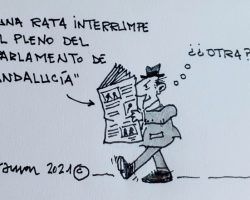 UNA RATA INTERRUMPE
EL PLENO DEL
PARLAMENTO DE
ANDALUCÍA"
¿¿OTRA?
2021©